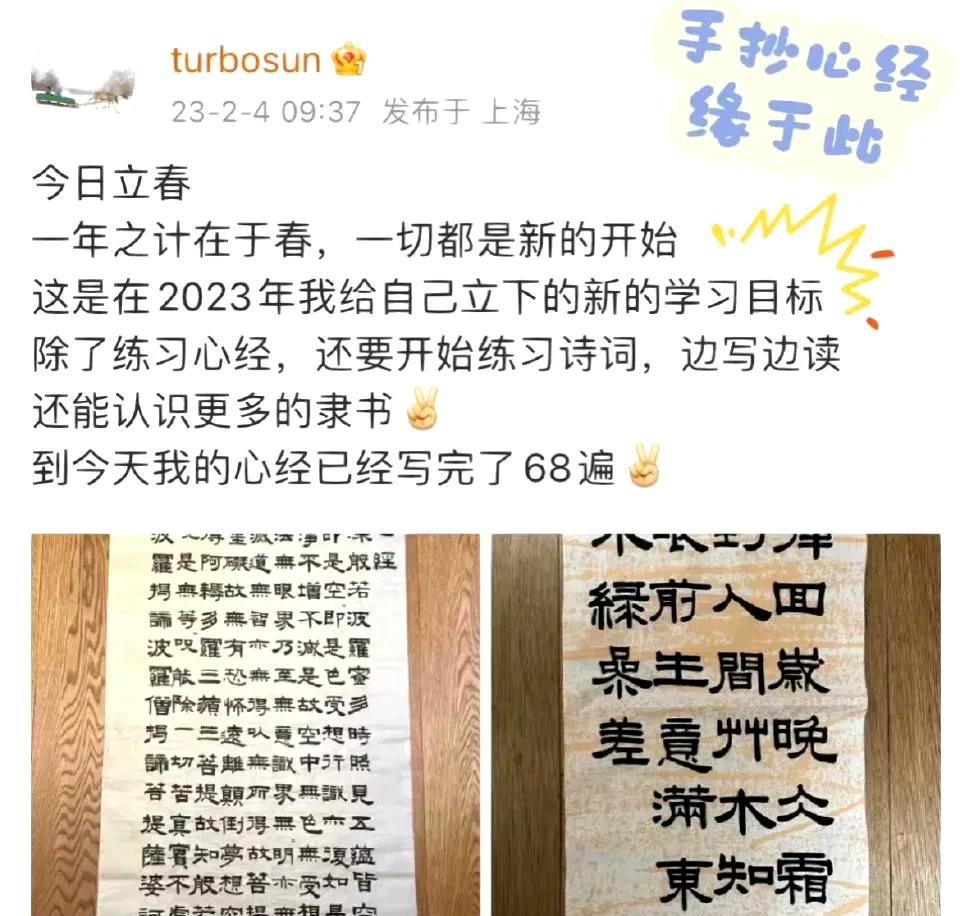 turbosun
23-2-4 09:37 发布于 上海
手抄心经
缘于此
今日立春
一年之计在于春，一切都是新的开始
这是在2023年我给自己立下的新的学习目标
除了练习心经，还要开始练习诗词，边写边读
还能认识更多的隶书✌
到今天我的心经已经写完了68遍✌
經
般若波羅蜜多時照見五蘊皆空
是空即是色受想行識亦復如是
不增不減是故空中無色無受想
無眼界乃至無意識界無明亦無
道無智亦無得以無所得故苦提
礙故無有恐怖遠離顛倒夢想究
阿耨多羅三藐三菩提故知般若
是無等等咒能除一切苦真實不虛
羅揭諦波羅僧揭諦菩提薩婆訶
回歲晚冰霜
人間艸木知
前生意滿東
綠參差